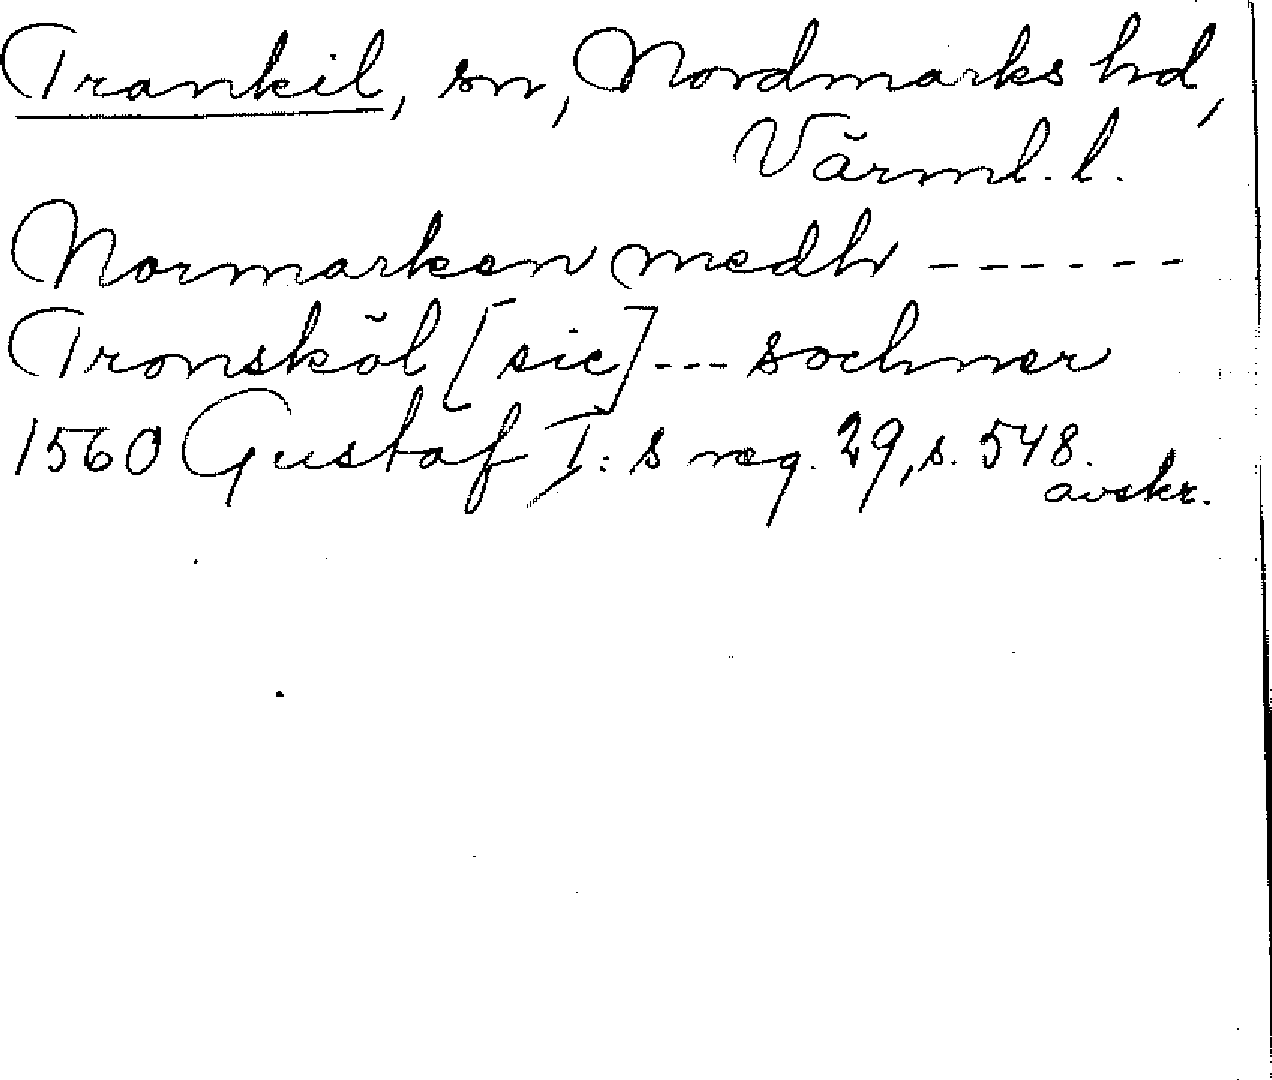 Trankil, sn, Nordmarks hd,
Värml. l.
Normarken medh ------
Tronsköl [sic] --- sochner
1560 Gustaf I: s reg. 29, s. 548.
avskr.